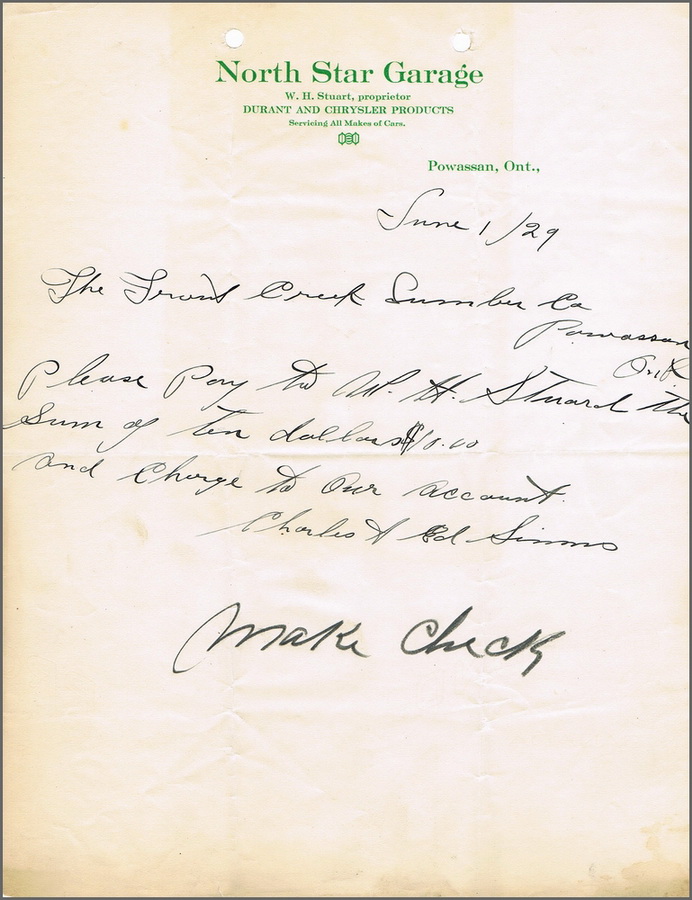 North Star Garage
W. H. Stuart, proprietor
DURANT AND CHRYSLER PRODUCTS
Servicing All Makes of Cars.
Powassan, Ont.,
June 1/29
The Trout Creek Lumber Co
Powassan
Ont
Please Pay to W. H. Stuard the
Sum of ten dollars $10.00
and Charge to Our account.
Charles & Ed Simms
Make Check